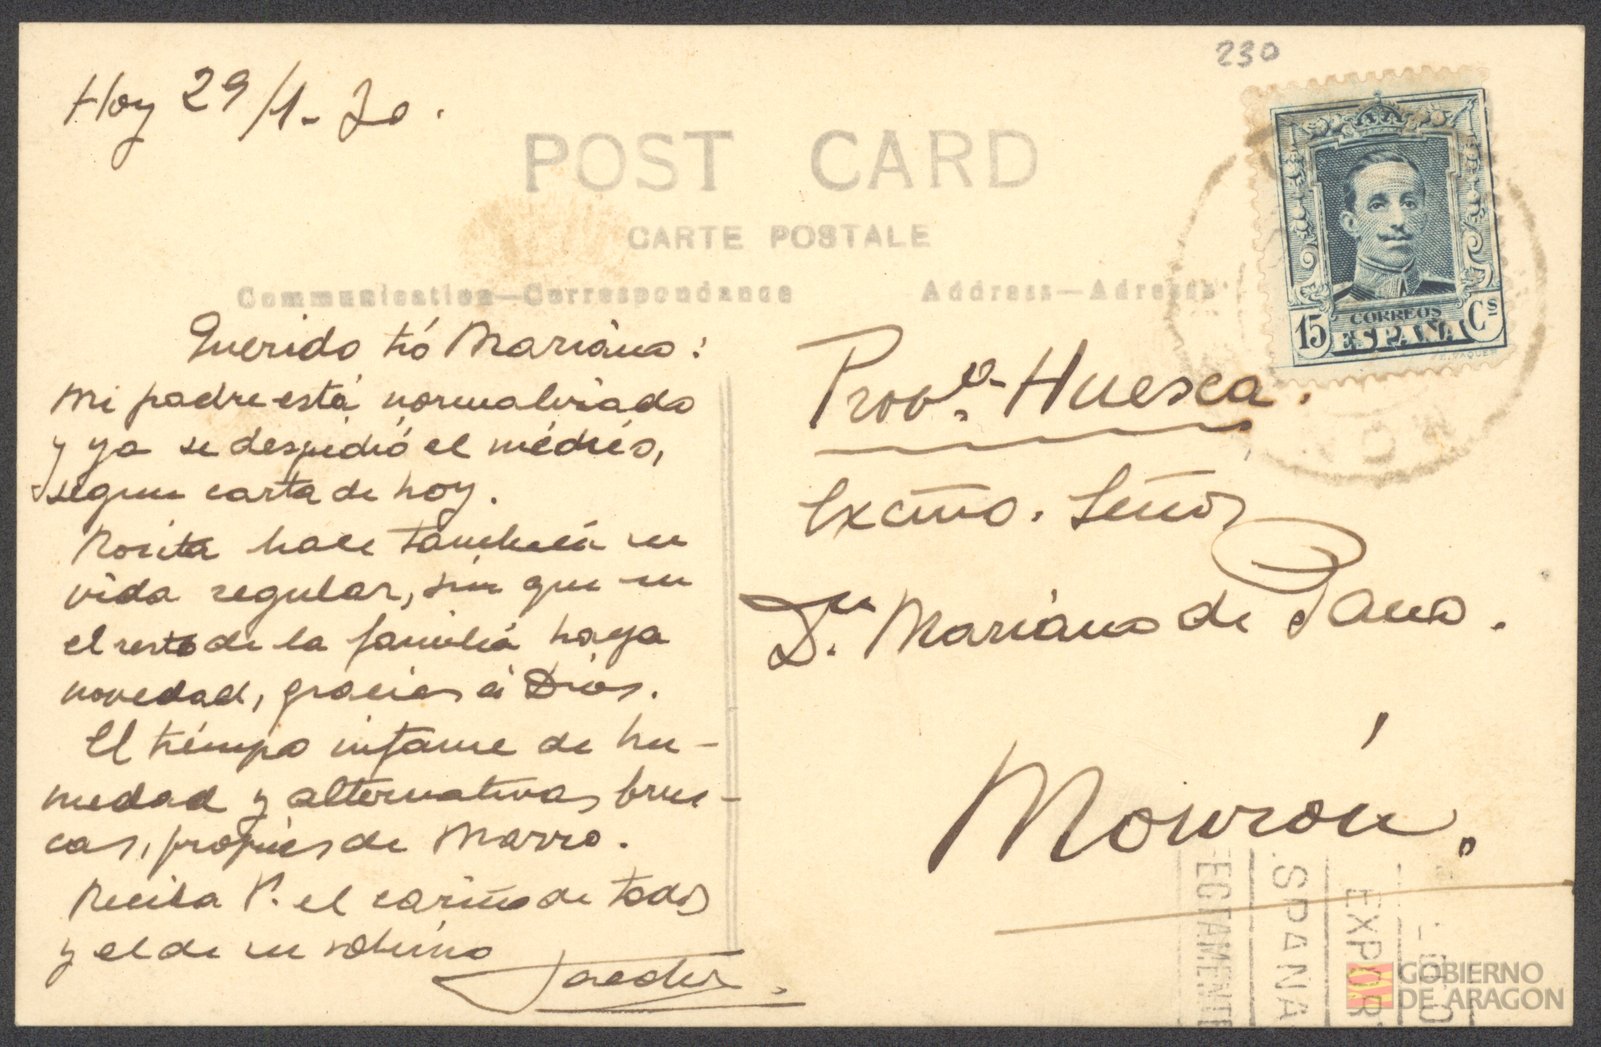 230
Hoy 29/1-30.
POST CARD
CARTE POSTALE
Communication—Correspondance
Address—Adresse
15 Cs
CORREOS
ESPAÑA
Querido tío Mariano:
Mi padre está normalizado
y ya se despidió el médico,
segun carta de hoy.
Rosita hace tambien su
vida regular, sin que en
el resto de la familia haya
novedad, gracias á Dios.
El tiempo infame de hu-
medad y alternativas brus-
cas, propias de Marzo.
Reciba V. el cariño de todos
y el de su sobrino
Provª Huesca.
Excmo. Señor
Dn. Mariano de Pano.
Monzón.
ECTAMENTE
SPANA
EXPORT
GOBIERNO
DE ARAGON